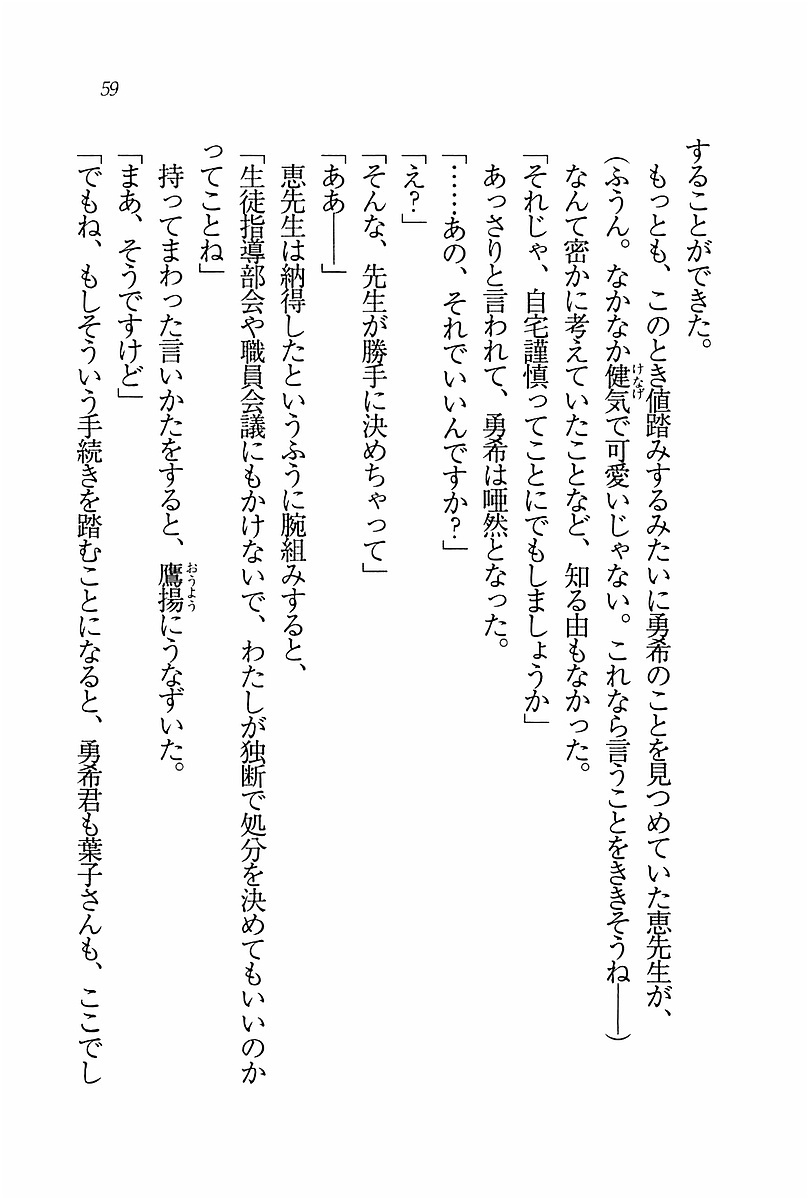 59
することができた。
もっとも、このとき値踏みするみたいに勇希のことを見つめていた恵先生が、
(ふうん。なかなか健気で可愛いじゃない。これなら言うことをききそうね――)
なんて密かに考えていたことなど、知る由もなかった。
「それじゃ、自宅謹慎ってことにでもしましょうか」
あっさりと言われて、勇希は唖然となった。
「……あの、それでいいんですか?」
「え?」
「そんな、先生が勝手に決めちゃって」
「ああ――」
恵先生は納得したというふうに腕組みすると、
「生徒指導部会や職員会議にもかけないで、わたしが独断で処分を決めてもいいのか
ってことね」
持ってまわった言いかたをすると、鷹揚にうなずいた。
「まあ、そうですけど」
「でもね、もしそういう手続きを踏むことになると、勇希君も葉子さんも、ここでし
けなげ
おうよう